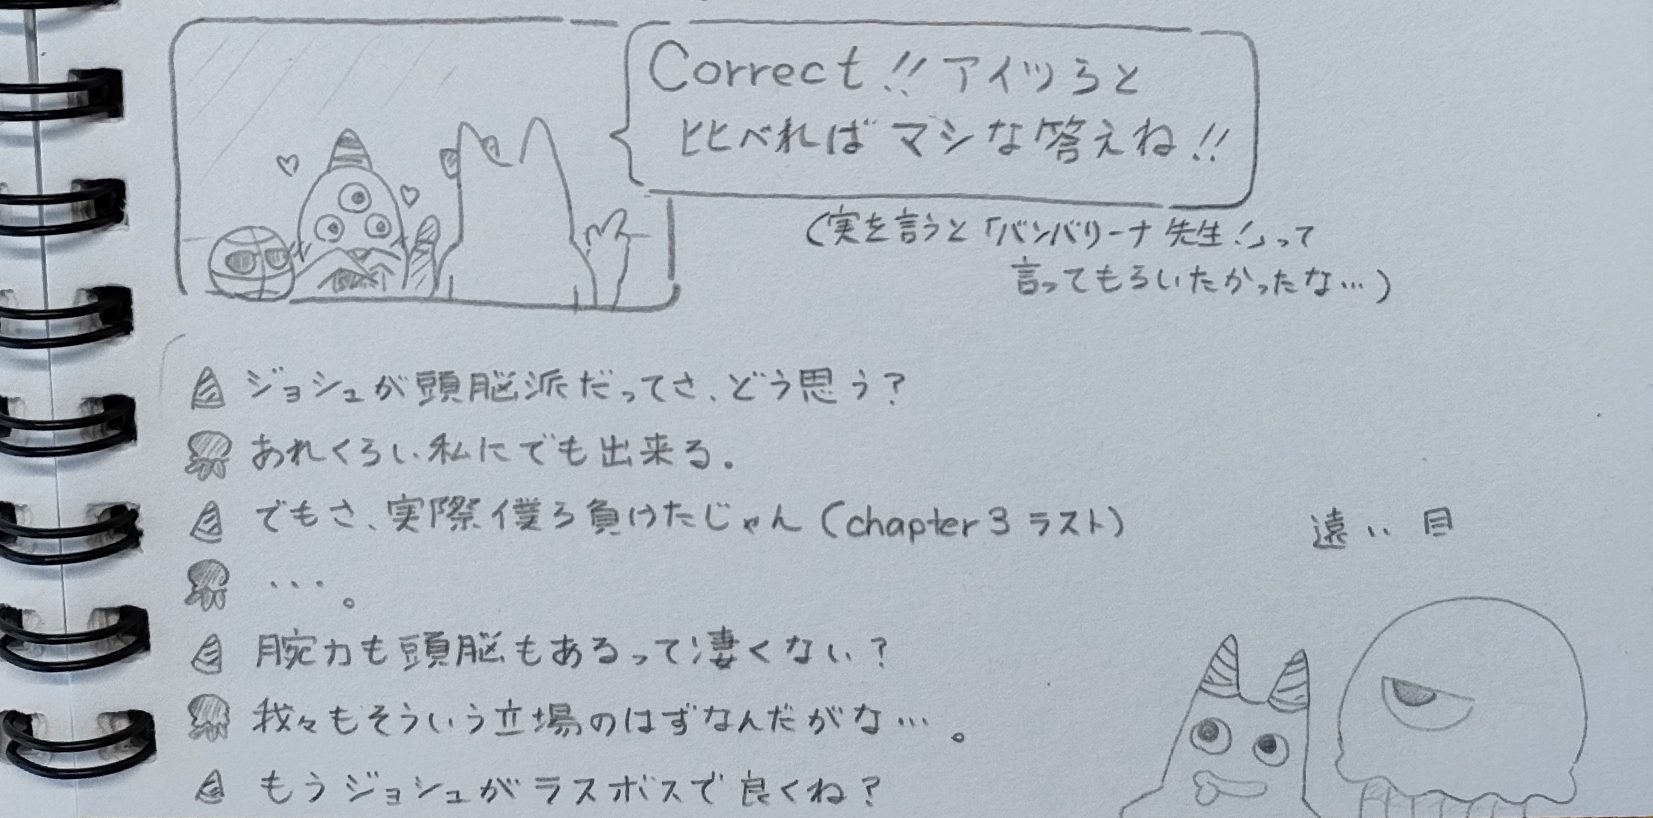 Correct!!アイツらと
比べればマシな答えね!!
(実を言うと「バンバリーナ先生!」って
言ってもらいたかったな…)
ジョシュが頭脳派だってさ、どう思う?
あれくらい私にでも出来る。
でもさ、実際僕ら負けたじゃん(chapter3ラスト)
…。
腕力も頭脳もあるって凄くない?
我々もそういう立場のはずなんだがな…。
もうジョシュがラスボスで良くね?
遠い目